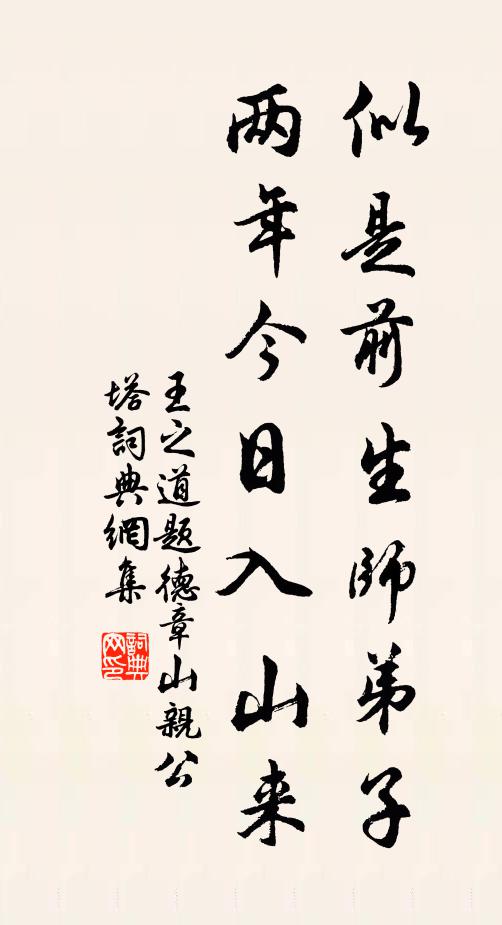 似是前生師弟子
两年今日入山来
王之道題德章山親公
塔詞典網集
詞典网印